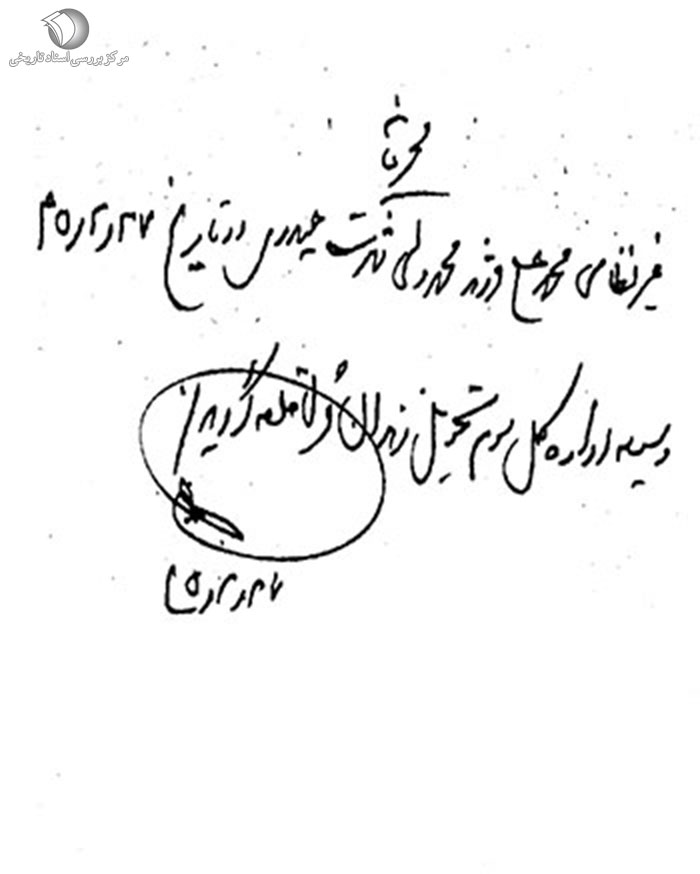 مرکز بررسی اسناد تاریخی
محرمانه
غیرنظامی محمد فرزند محمدولی شهرت حیدری در تاریخ
وسیله اداره کل سوم تحویل زندان قزل قلعه گردید